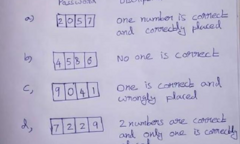 a) 2 0 5 7 One number is correct
and correctly placed
b) 4 5 3 6 No one is correct
c, 9 0 4 1 One is correct and
wrongly placed
d, 7 2 2 9 2 numbers are correct
and only one is correctly